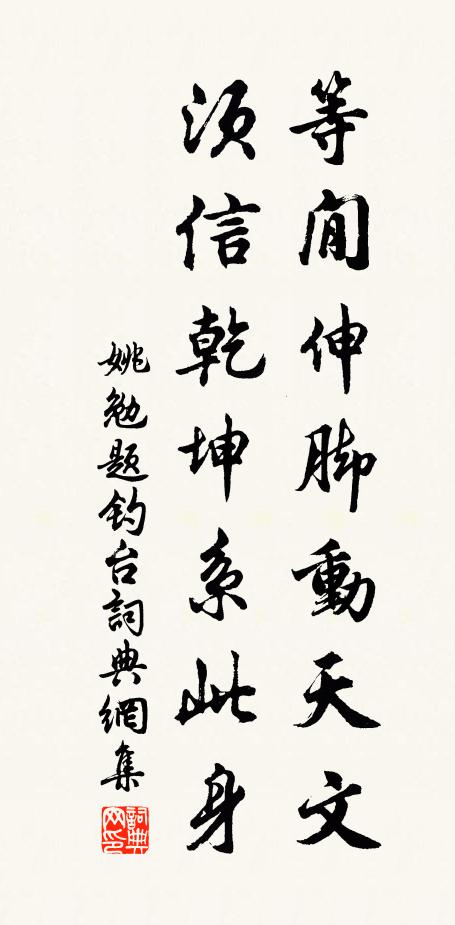 等閒伸脚動天文
須信乾坤系此身
姚勉題钓台詞典網集
詞典网印